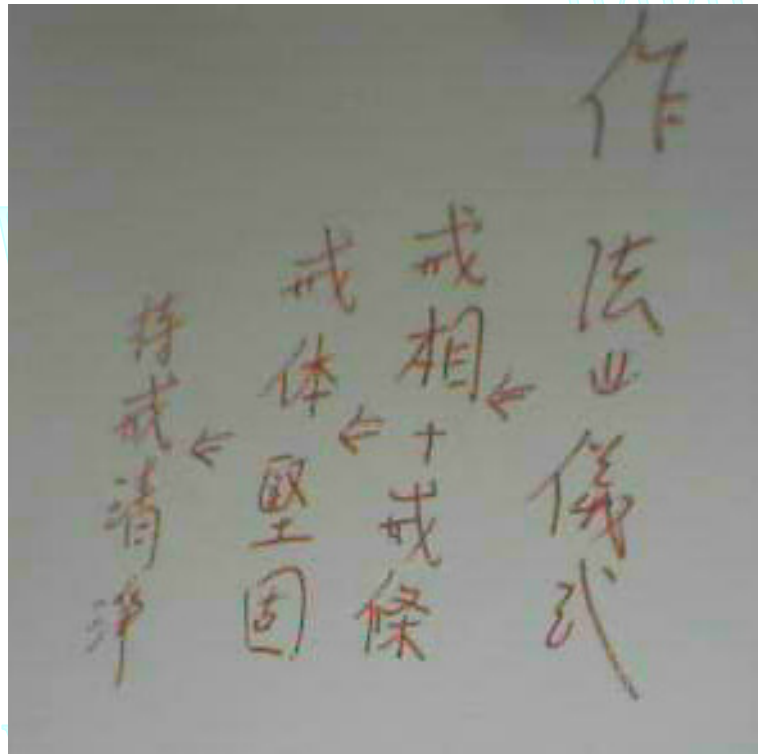 作法=儀式
←戒相+戒條
←戒体堅固
←持戒清净